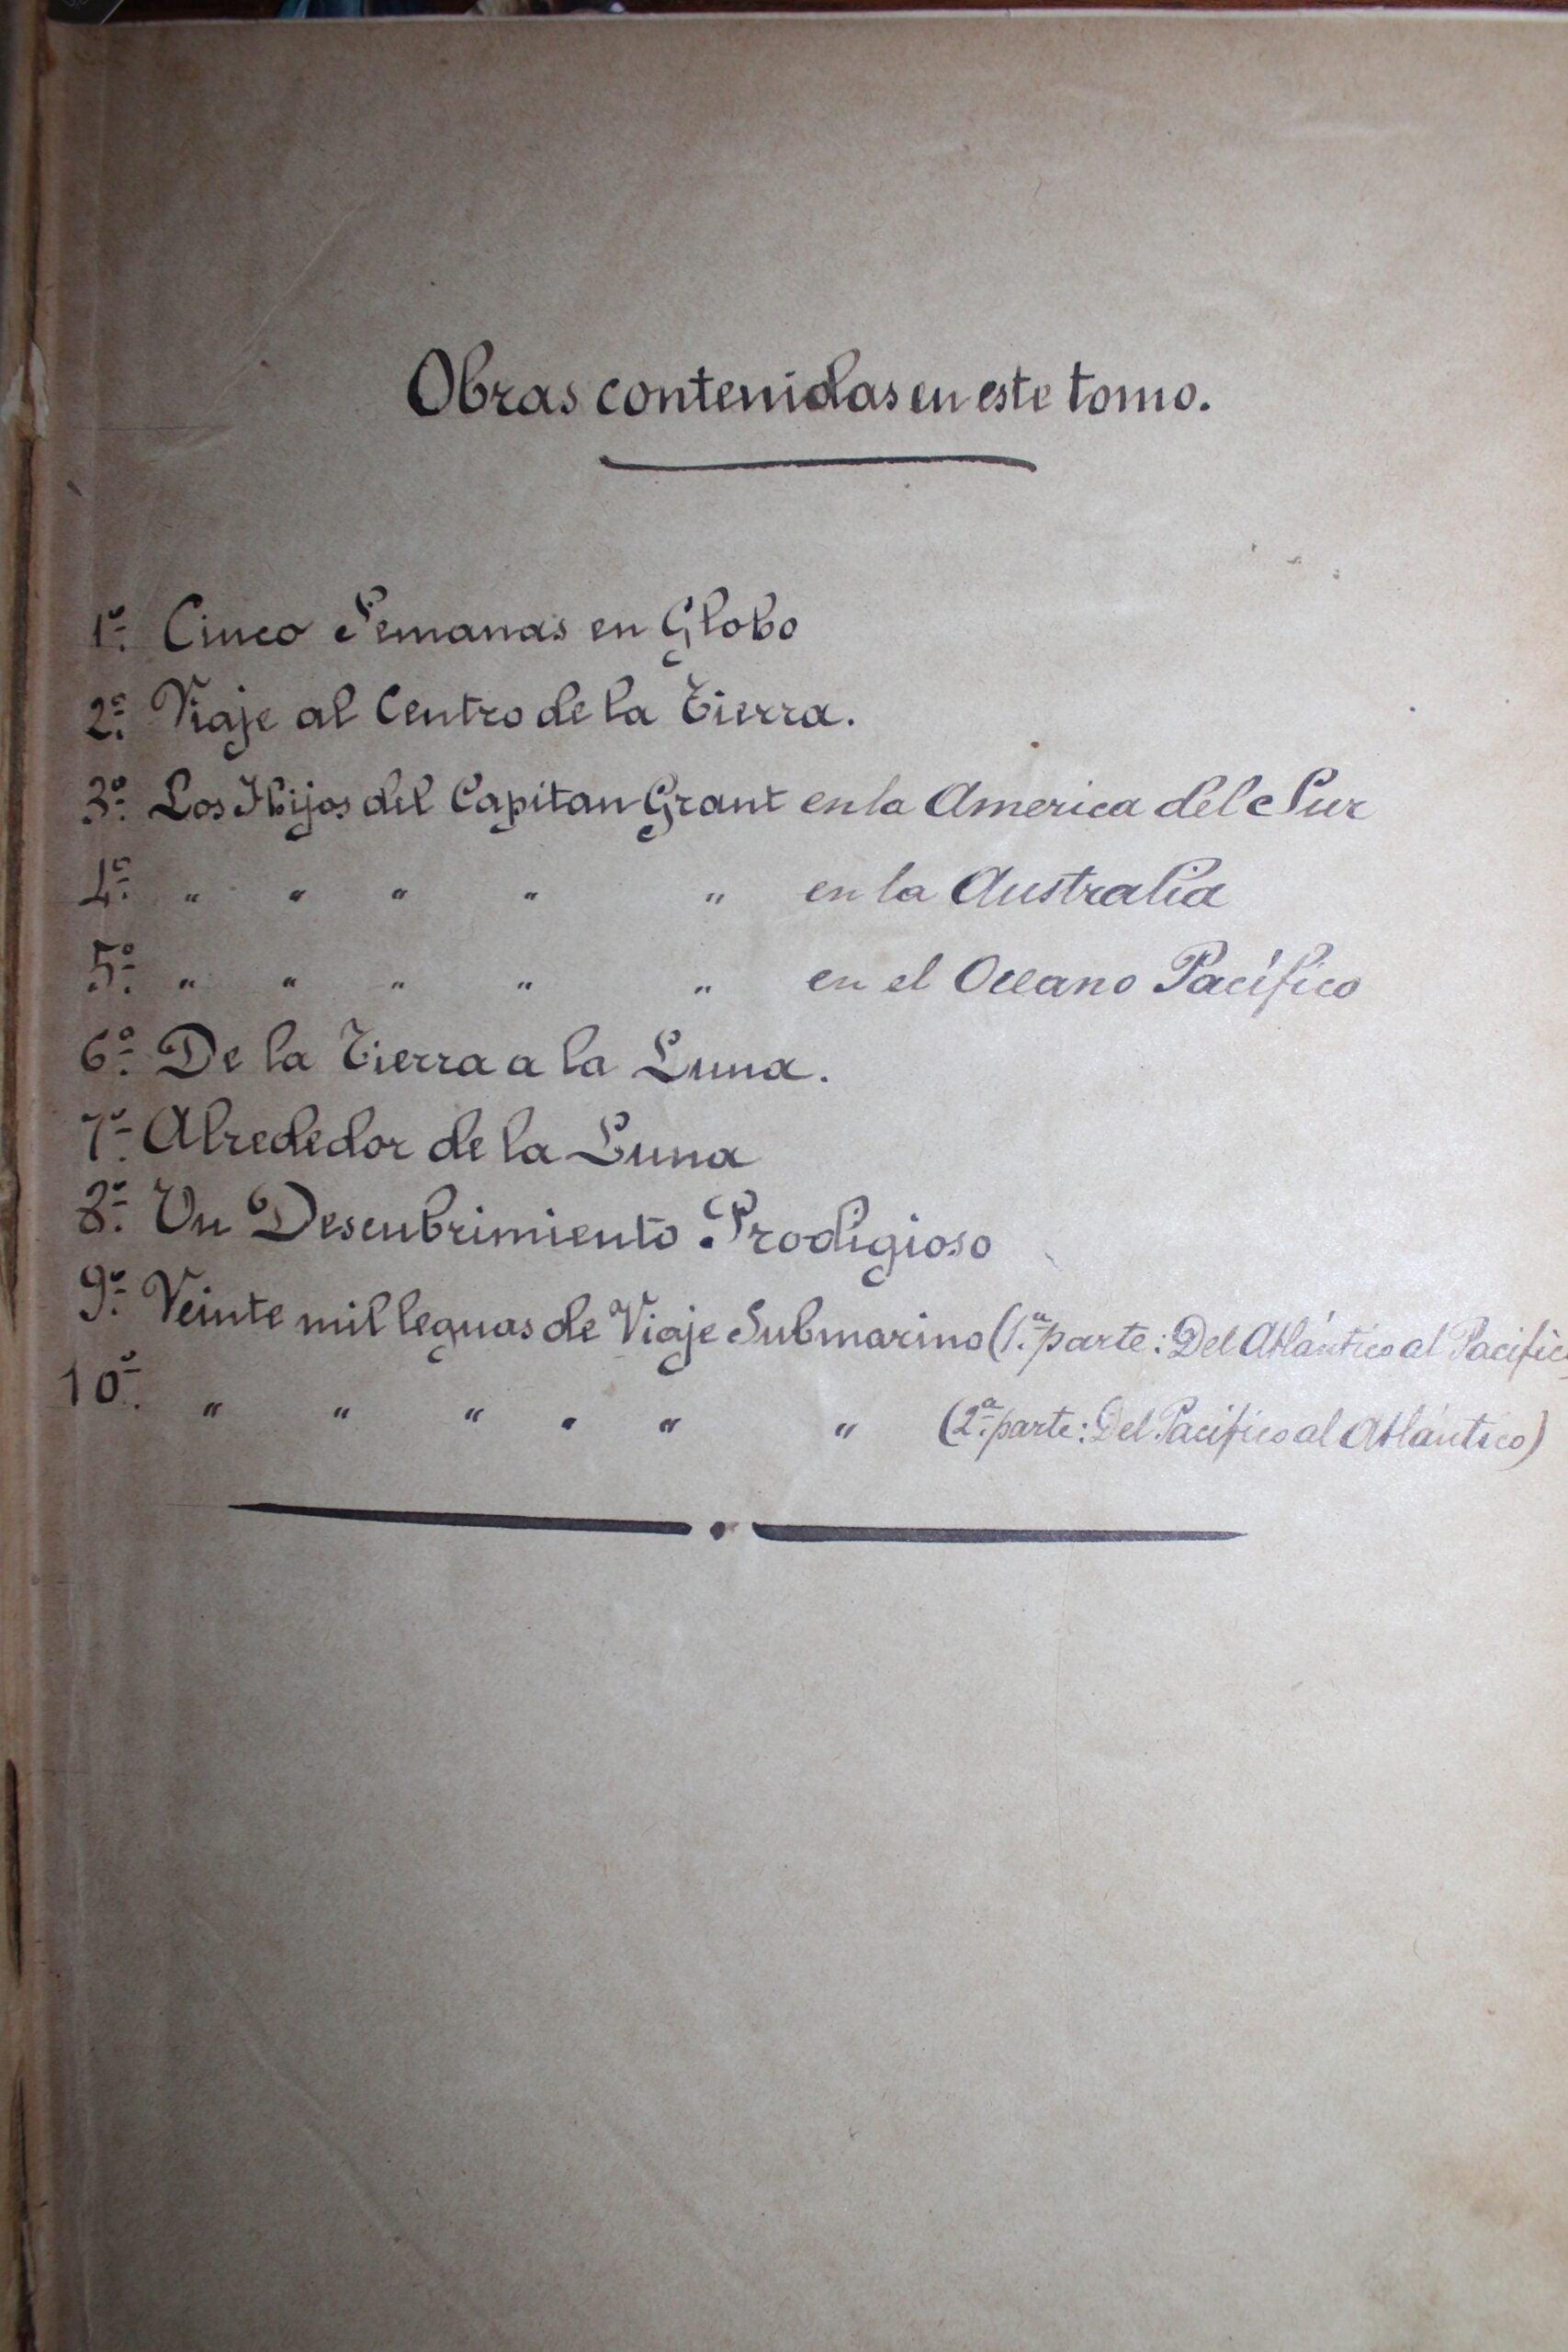 Obras contenidas en este tomo.
1º. Cinco Semanas en Globo
2º. Viaje al Centro de la Tierra.
3º. Los Hijos del Capitan Grant en la America del Sur
4º. " " " " " en la Australia
5º. " " " " " en el Oceano Pacífico
6º. De la Tierra a la Luna.
7º. Alrededor de la Luna
8º. Un Descubrimiento Prodigioso
9º. Veinte mil leguas de Viaje Submarino (1.ª parte: Del Atlántico al Pacifico
10º. " " " " " " (2.ª parte: Del Pacifico al Atlántico)